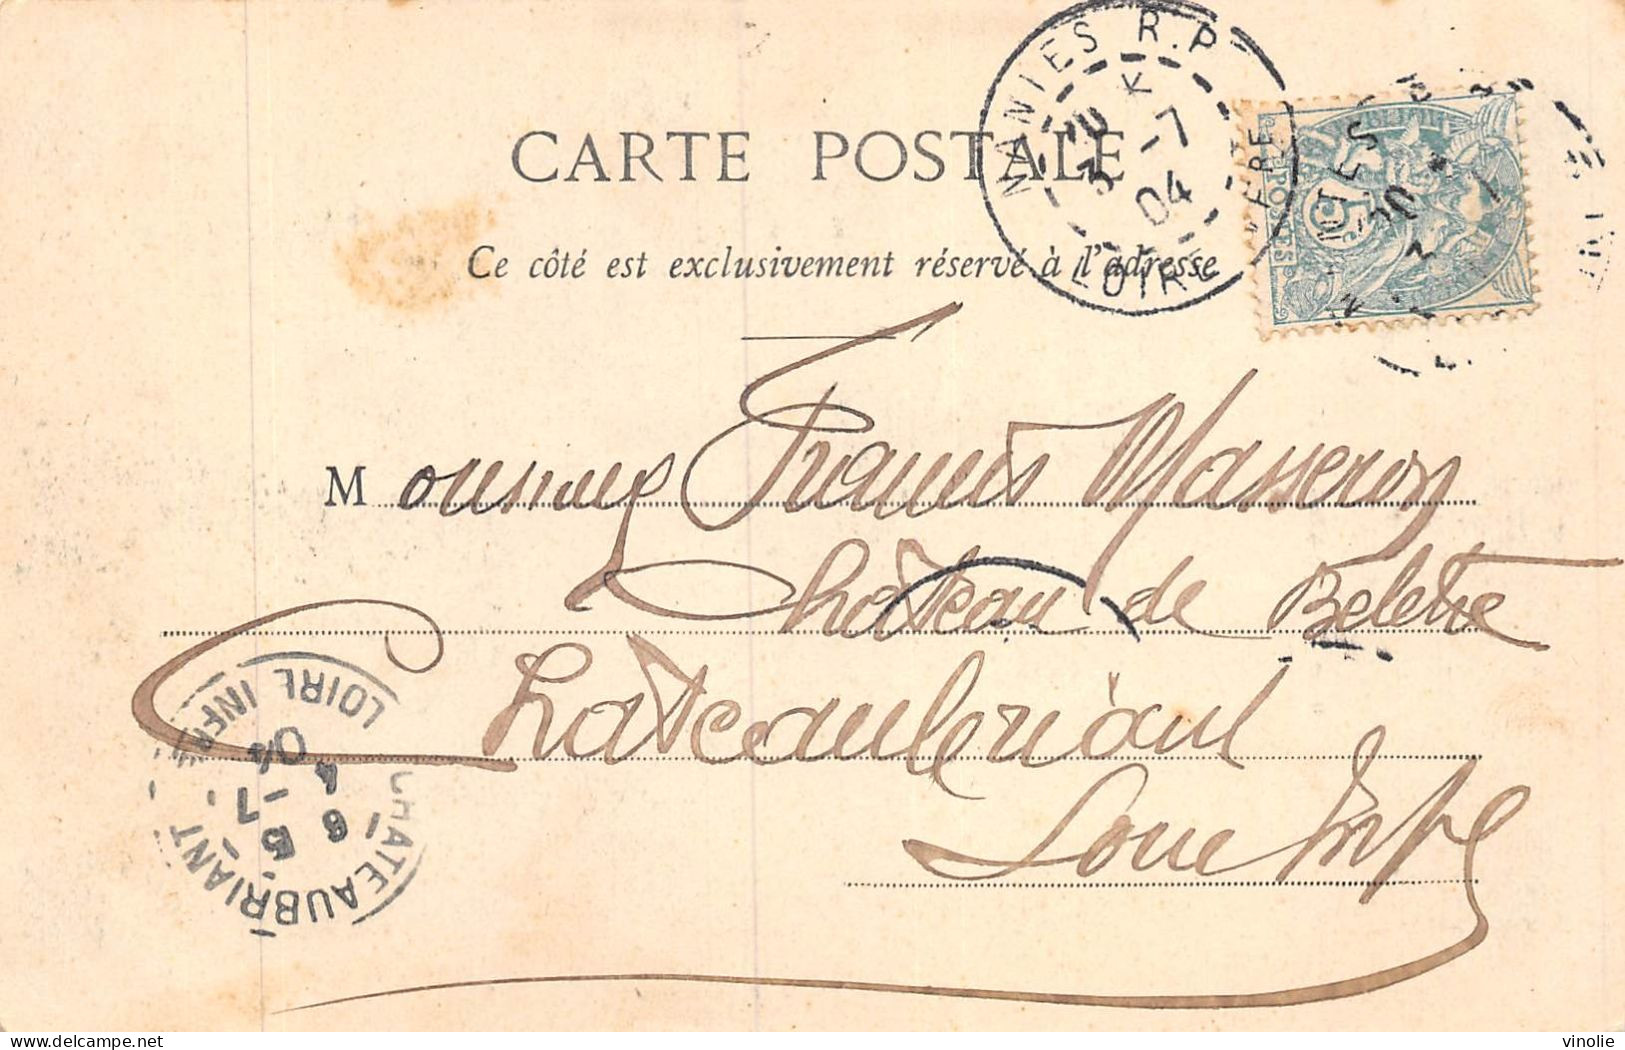 CARTE POSTALE
Ce côté est exclusivement réservé à l'adresse
NANTES R.P.
K
3 -7
04
LOIRE
POSTES
5
Monsieur Francis Masseron
Château de
Chateaubriant
Loire Infre
CHATEAUBRIANT
5 -7
04
LOIRE INFRE
delcampe.net
vinolie